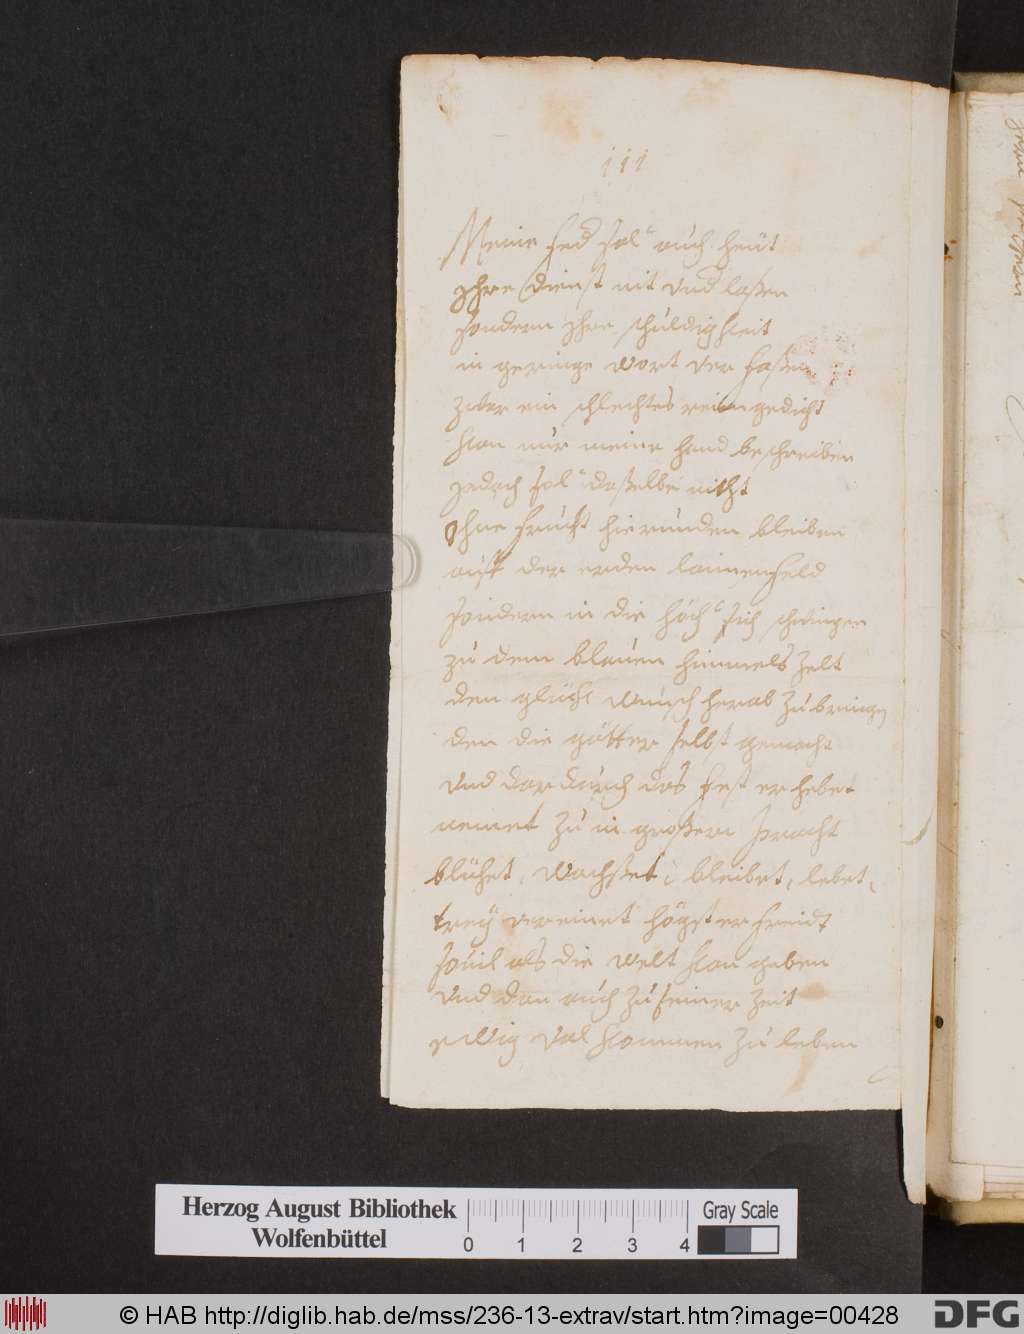 iii
Meine fed sol auch heüt
ihre dienst nit Vnd laßen
sondern ihre schuldigkeit
in geringe wort ver faßen
zwar ein schlechtes reimgedicht
kan nur meine hand beschreiben
jedoch sol daßelbe nitht
ohne frucht hierunden bleiben
auff der erden
sondern in die höch sich schwingen
zu dem blauen himmels zelt
den glück wunsch herab zu bringen
den die götter selbst gemacht
Vnd dardurch das fest erhebet
nemet zu in großem pracht
blühet, wachßet, bleibet, lebet,
treÿ vereinet högster freidt
souil als die welt kan geben
Vnd dan auch zu seiner zeit
ewig Vol kommen zu leben
Herzog August Bibliothek
Wolfenbüttel
0 1 2 3 4
Gray Scale
© HAB http://diglib.hab.de/mss/236-13-extrav/start.htm?image=00428
DFG